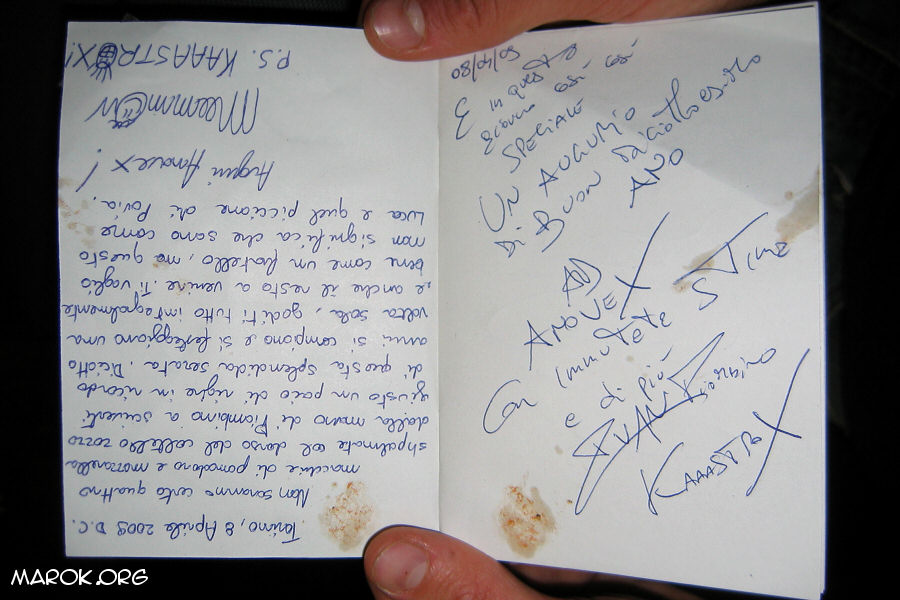 Torino, 8 Aprile 2009 D.C.
Non saranno certo quattro
macchie di pomodoro e mozzarella
spalmate col dorso del coltello zozzo
dalla mano di Piombino a scriverti
giusto un paio di righe in ricordo
di questa splendida serata. Diciotto
anni si compiono e si festeggiano una
volta sola, goditi tutto integralmente
e anche il resto a venire. Ti voglio
bene come un fratello, ma questo
non significa che sono come
Luca e quel piccione di Povia.
Auguri Anovex!
P.S. KAAASTROX!
08/04/09
E in queste
così così
SPECIALE
UN AUGURIO
DI BUON diciottesimo
ANO
AD
ANOVEX
Con immutate STIMA
e di più
KAAASTROX
MAROK.ORG